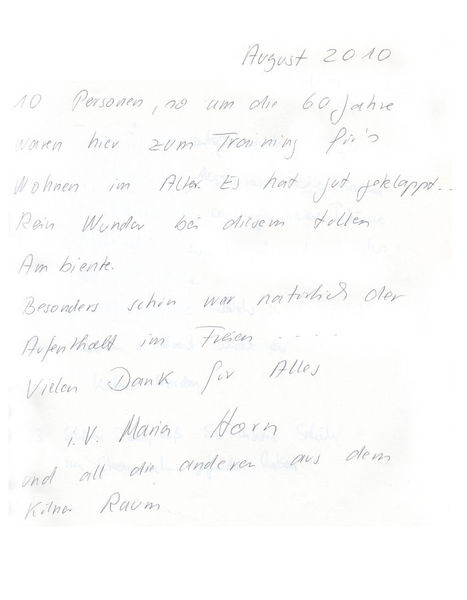 August 2010
10 Personen, so um die 60 Jahre
waren hier zum Training für's
Wohnen im Alter. Es hat gut geklappt...
Kein Wunder bei diesem tollen
Ambiente.
Besonders schön war natürlich der
Aufenthalt im Freien . . . .
Vielen Dank für Alles
i.V. Maria Horn
und all die anderen aus dem
Kölner Raum